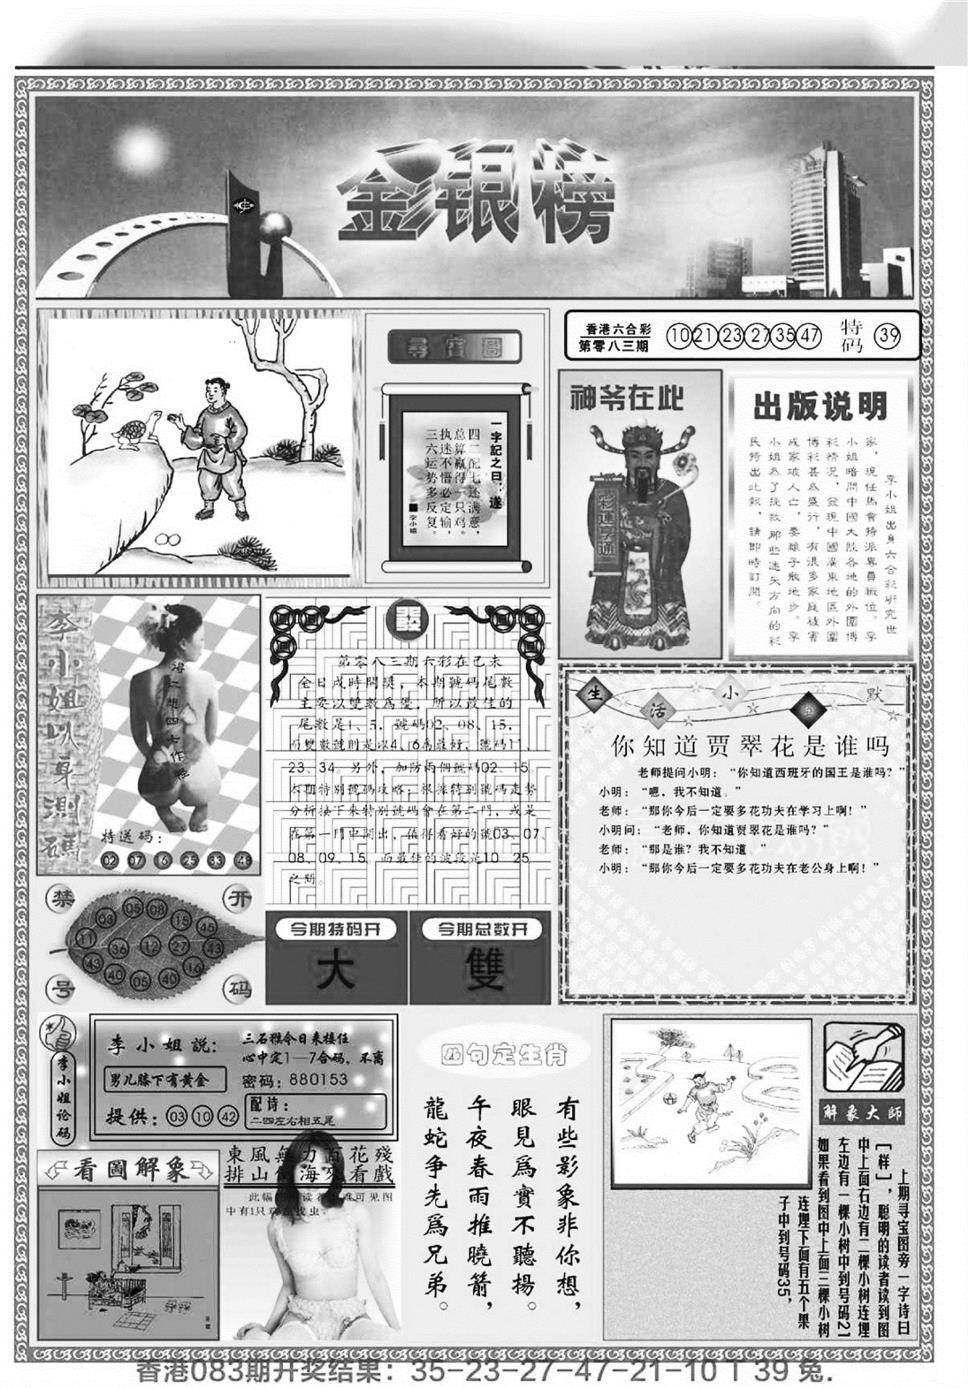 金银榜
尋寶圖
一字記之曰：遂
四二配七还满意，
总算赢得一只鸡。
执迷不悟必定输，
三六运势多反复。
■李小姐
香港六合彩
第零八三期
10 21 23 27 35 47
特码
39
神爷在此
出版说明
李小姐出身六合彩研究世
家，現任馬會特派專員職位。李
小姐暗問中國大陸各地的外圍博
彩情况，發現中國廣東地區外圍
博彩甚為盛行，有很多家庭被害
成家破人亡，妻離子散地步。李
小姐為了挽救那些迷失方向的彩
民特出此報，請即時訂閱。
李小姐以身測碼
特送码：
02 07 16 25 33 48
第零八三期六彩在己未
金日戌時開獎，本期號码尾數
主要以雙數為優，所以最佳的
尾數是1、5，號码02、08、15，
23、34。另外，加防兩個號码02、15。
本期特别號码攻略：根據特别號码走勢
分析接下来特别號码會在第二門，或是
在第一門中開出，值得看好的號03、07、
08、09、15。而最佳的波段是10—25
之間。
生活小幽默
你知道贾翠花是谁吗
老师提问小明：“你知道西班牙的国王是谁吗？”
小明：“嗯，我不知道。”
老师：“那你今后一定要多花功夫在学习上啊！”
小明问：“老师，你知道贾翠花是谁吗？”
老师：“那是谁？我不知道。”
小明：“那你今后一定要多花功夫在老公身上啊！”
禁号开码
今期特码开
大
今期总数开
雙
李小姐论码
李小姐説：
三石雅令日来接任
心中定1—7合码，不离
男儿膝下有黄金
密码：880153
提供：03 10 42
配诗：
二四左右相五尾
看圖解象
東風無力百花殘
四句定生肖
有些影象非你想，
眼見爲實不聽揚。
午夜春雨推曉箭，
龍蛇争先爲兄弟。
解象大師
上期寻宝图旁一字诗曰
［样］，聪明的读者读到图
中上面右边有二棵小树连埋
左边有一棵小树中到号码21
如果看到图中上面三棵小树
连埋下面有五个果
子中到号码35，
香港083期开奖结果：35-23-27-47-21-10 T 39 兔.